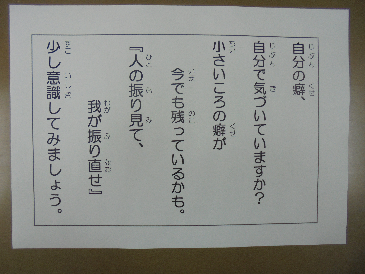 自分の癖、
自分で気づいていますか？
小さいころの癖が
今でも残っているかも。
『人の振り見て、
我が振り直せ』
少し意識してみましょう。